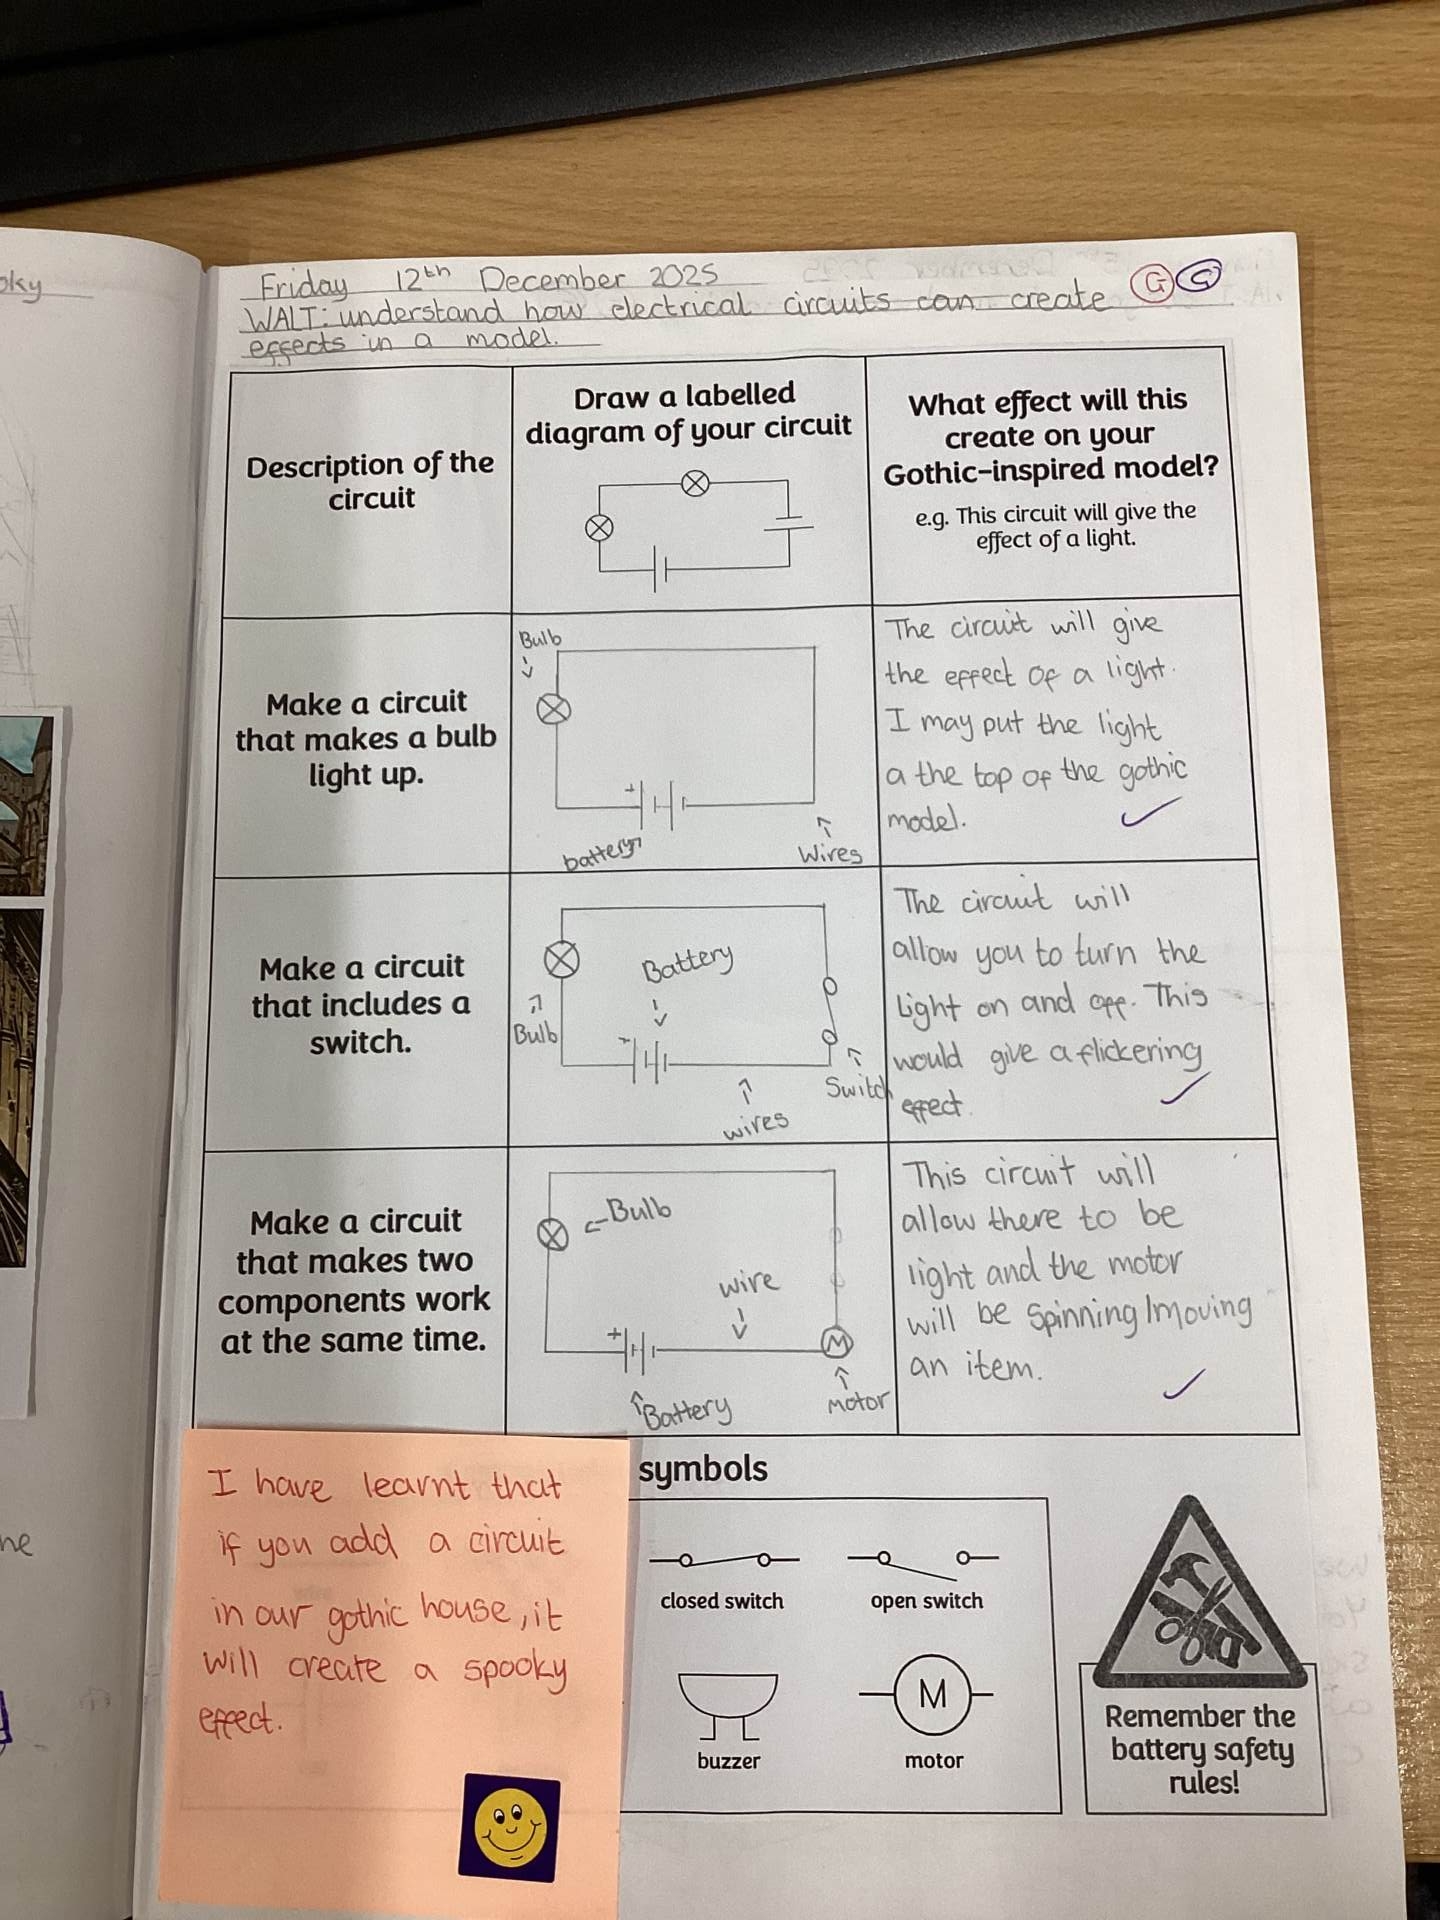 oky
Friday 12th December 2025
WALT: understand how electrical circuits can create G G
effects in a model.
Description of the
circuit
Draw a labelled
diagram of your circuit
What effect will this
create on your
Gothic-inspired model?
e.g. This circuit will give the
effect of a light.
Make a circuit
that makes a bulb
light up.
Bulb
+
battery
Wires
The circuit will give
the effect of a light.
I may put the light
a the top of the gothic
model.
Make a circuit
that includes a
switch.
Battery
Bulb
Switch
wires
The circuit will
allow you to turn the
light on and off. This
would give a flickering
effect.
Make a circuit
that makes two
components work
at the same time.
Bulb
wire
+
M
Battery
Motor
This circuit will
allow there to be
light and the motor
will be spinning/moving
an item.
I have learnt that
if you add a circuit
in our gothic house, it
will create a spooky
effect.
symbols
closed switch
open switch
buzzer
M
motor
Remember the
battery safety
rules!